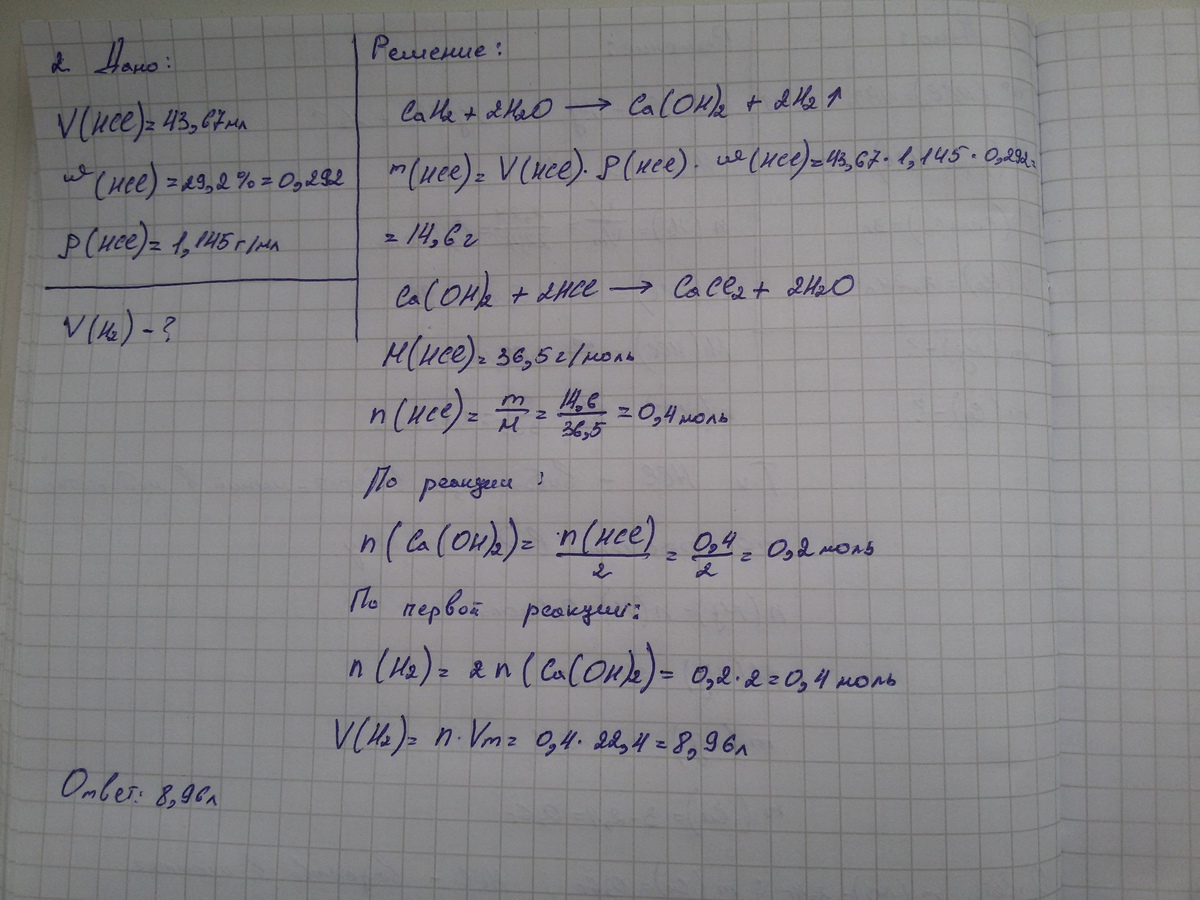 2. Дано:
V(HCl)= 43,67 мл
ω(HCl) = 29,2% = 0,292
ρ(HCl)= 1,145 г/мл
V(H₂) - ?
Решение:
CaH₂ + 2H₂O ⟶ Ca(OH)₂ + 2H₂↑
m(HCl)= V(HCl)·ρ(HCl)·ω(HCl)=43,67·1,145·0,292=
= 14,6 г
Ca(OH)₂ + 2HCl ⟶ CaCl₂ + 2H₂O
M(HCl)= 36,5 г/моль
n(HCl)= m/M = 14,6/36,5 = 0,4 моль
По реакции:
n(Ca(OH)₂)= n(HCl)/2 = 0,4/2 = 0,2 моль
По первой реакции:
n(H₂)= 2n(Ca(OH)₂)= 0,2·2=0,4 моль
V(H₂)= n·Vm= 0,4·22,4=8,96 л
Ответ: 8,96 л